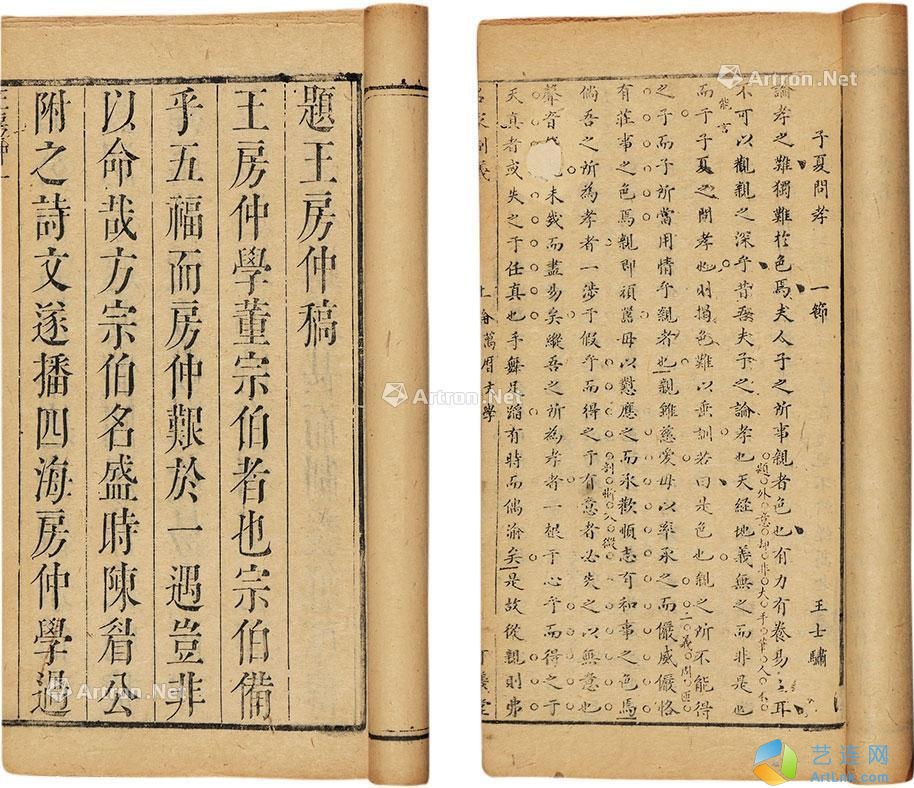 題王房仲稿
王房仲學董宗伯者也宗伯備
乎五福而房仲艱於一遇豈非
以命哉方宗伯名盛時陳眉公
附之詩文遂播四海房仲學過
王房仲
子夏問孝 一節 王士驌
論孝之難獨難於色焉夫人子之所事親者色也有力有養易耳
題外意却非大手筆人不
不可以觀親之深乎昔夫子之論孝也天經地義無之而非是也
能言
而于子夏之問孝也則揭色難以垂訓若曰是色也親之所不能得
二義開
之子而子所當用情乎親者也親雖慈愛毋以率承之而儼威儼恪
有莊事之色焉親即頑嚚毋以懟應之而承歡順志有和事之色焉
倘吾之所為孝者一涉于假乎而得之于有意者必失之以無意也
剖晰入微
聲音未幾而盡易矣蹤吾之所為孝者一根于心乎而得之于
天真者或失之于任真也手舞足蹈有時而偶渝矣是故從親則弗
名家制義 上論 萬曆文學 可儀堂
Artron.Net
Artron.Net
Artron.Net
Artron.Net
艺连网
ArtLnk.com